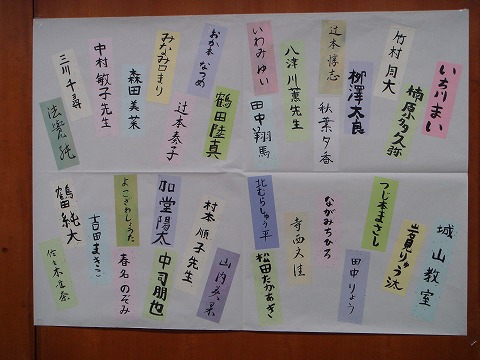 いち川まい
楠原多久弥
竹村月大
柳澤太良
辻本惇志
秋葉夕香
八津川薫先生
いわみゆい
田中翔馬
鶴田陸真
おか本なつめ
辻本奏子
みなみ口まり
森田美菜
中村敏子先生
三川千尋
城山教室
岩見りゅう汰
つじ本まさし
田中りょう
ながみちひろ
寺西文佳
北むらしゅう平
松田たかあき
山内
村本順子先生
中司朋也
加堂陽太
春名のぞみ
よこざわしょうた
吉田まきこ
鶴田純大
佐々木